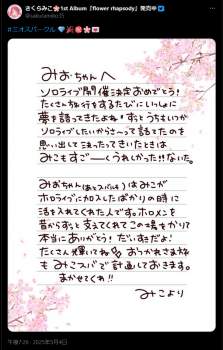 さくらみこ🌸1st Album「flower rhapsody」発売中
@sakuramiko35
#ミオスパークル
みおちゃんへ
ソロライブ開催決定おめでとう!
たくさんお行をするたびにいっしょに
夢を語ってきたよね!ずっとうちもいつか
ソロライブしたいからさ〜って話してたのを
思い出して きいたときは
みこもすご——くうれしかった!!ないた。
みおちゃん(あとスバルも)はみこが
ホロライブに加入したばかりの時に
活を入れてくれた人です。ホロメンを
昔からずっと支えてくれてこの場をかりて
本当にありがとう!だいすきだよ!
たくさん輝いてね おつかれさま会
も みこスバで計画しておきます。
まかせてくれ!!
みこより
2025年5月4日